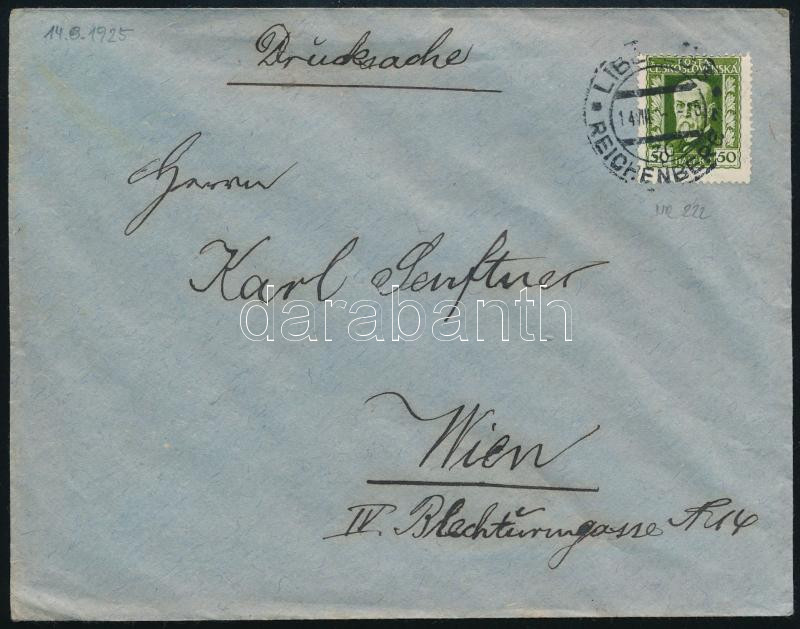 14.8.1925
Drucksache
POŠTA
ČESKOSLOVENSKÁ
50 50
LIBE
14 VIII
REICHENBERG
NR 222
Herrn
Karl Senftner
darabanth
Wien
IV. Blechturmgasse № 14